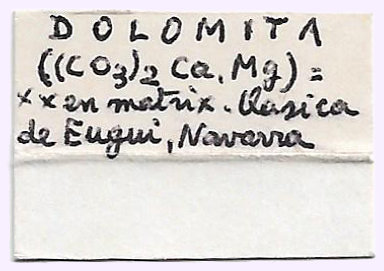 DOLOMITA
((CO3)2 Ca, Mg) =
xx en matrix. Clasica
de Eugui, Navarra